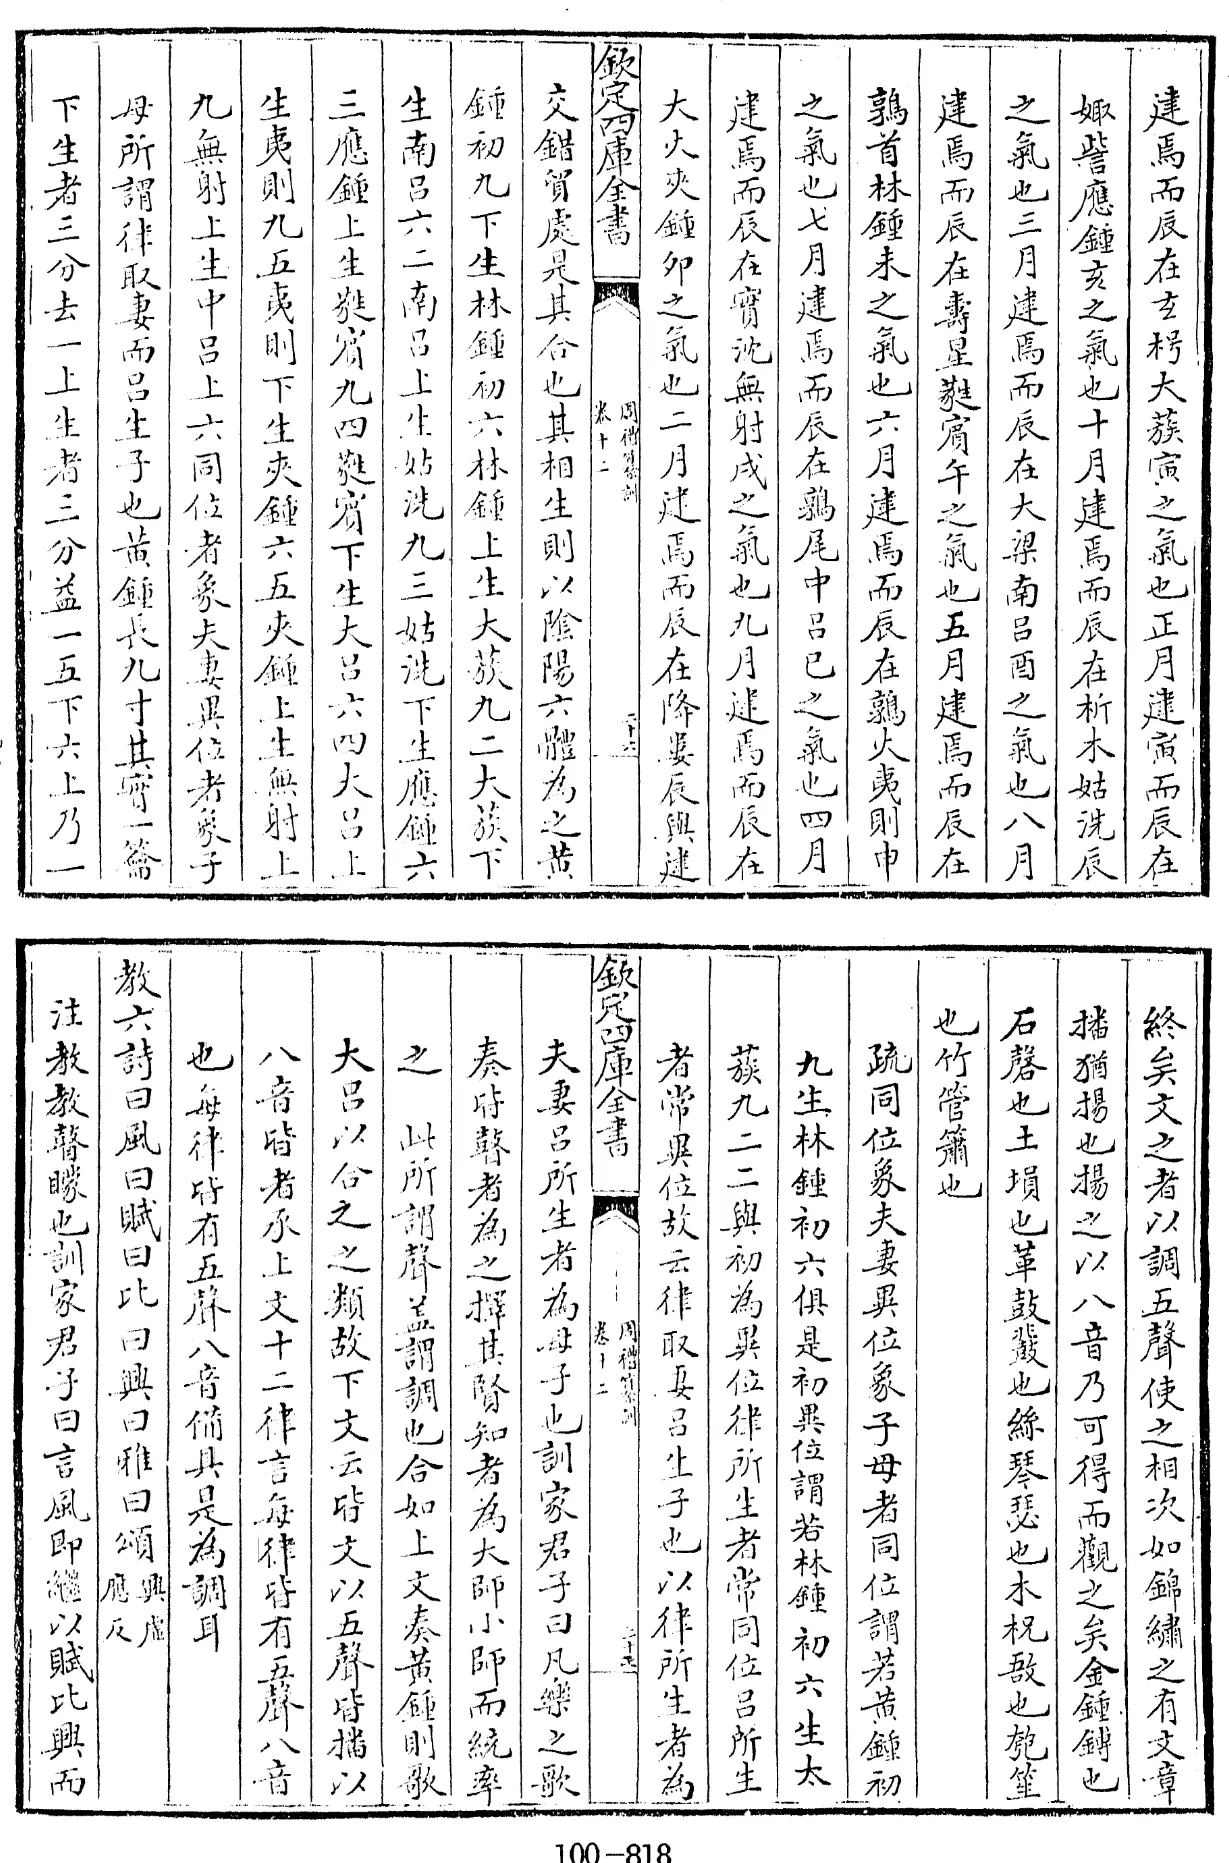 建焉而辰在玄枵大蔟寅之氣也正月建寅而辰在
娵訾應鍾亥之氣也十月建焉而辰在析木姑洗辰
之氣也三月建焉而辰在大梁南呂酉之氣也八月
建焉而辰在壽星蕤賓午之氣也五月建焉而辰在
鶉首林鍾未之氣也六月建焉而辰在鶉火夷則申
之氣也七月建焉而辰在鶉尾中呂巳之氣也四月
建焉而辰在實沈無射戌之氣也九月建焉而辰在
大火夾鍾卯之氣也二月建焉而辰在降婁辰與建
欽定四庫全書
周禮纂訓
卷十二
交錯貿處是其合也其相生則以陰陽六體為之黃
鍾初九下生林鍾初六林鍾上生大蔟九二大蔟下
生南呂六二南呂上生姑洗九三姑洗下生應鍾六
三應鍾上生蕤賓九四蕤賓下生大呂六四大呂上
生夷則九五夷則下生夾鍾六五夾鍾上生無射上
九無射上生中呂上六同位者象夫妻異位者象子
母所謂律取妻而呂生子也黃鍾長九寸其實一籥
下生者三分去一上生者三分益一五下六上乃一
終矣文之者以調五聲使之相次如錦繡之有文章
播猶揚也揚之以八音乃可得而觀之矣金鍾鎛也
石磬也土塤也革鼓鼗也絲琴瑟也木柷敔也匏笙
也竹管簫也
疏同位象夫妻異位象子母者同位謂若黃鍾初
九生林鍾初六俱是初異位謂若林鍾初六生太
蔟九二二與初為異位律所生者常同位呂所生
者常異位故云律取妻呂生子也以律所生者為
欽定四庫全書
周禮纂訓
卷十二
夫妻呂所生者為母子也訓家君子曰凡樂之歌
奏皆瞽者為之擇其賢知者為大師小師而統率
之 此所謂聲蓋謂調也合如上文奏黃鍾則歌
大呂以合之之類故下文云皆文以五聲皆播以
八音皆者承上文十二律言每律皆有五聲八音
也每律皆有五聲八音備具是為調耳
教六詩曰風曰賦曰比曰興曰雅曰頌興虛應反
注教教瞽矇也訓家君子曰言風即繼以賦比興而
100-818